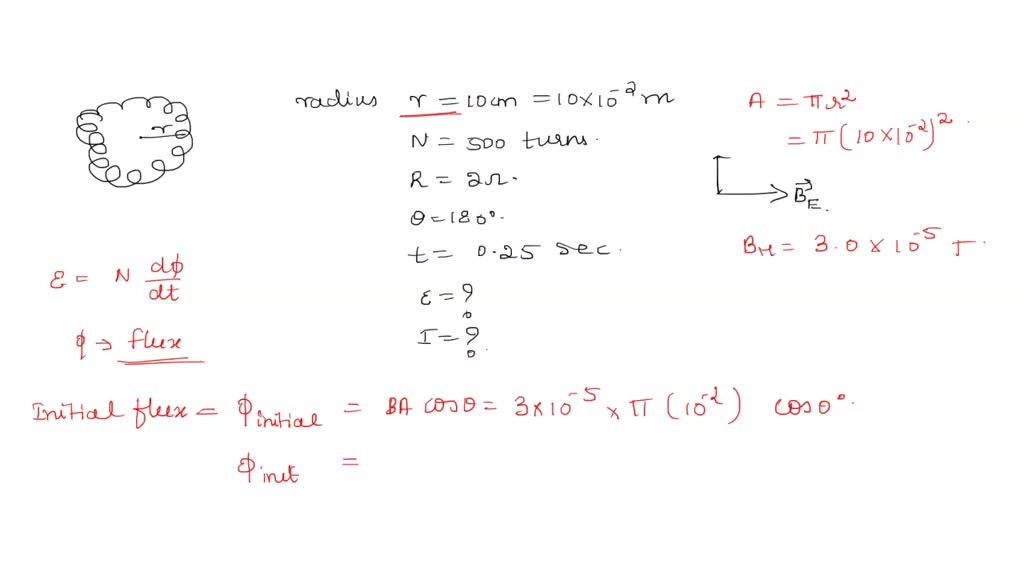 r
radius r = 10cm = 10×10⁻² m
N = 500 turns.
R = 2Ω.
θ = 180°.
t = 0.25 sec.
ε = ?
I = ?
A = πr²
= π(10×10⁻²)².
B⃗E.
BH = 3.0 × 10⁻⁵ T.
ε = N dφ/dt
φ → flux
Initial flux = φinitial = BA cosθ = 3×10⁻⁵ × π (10⁻²) cos0°.
φinit =